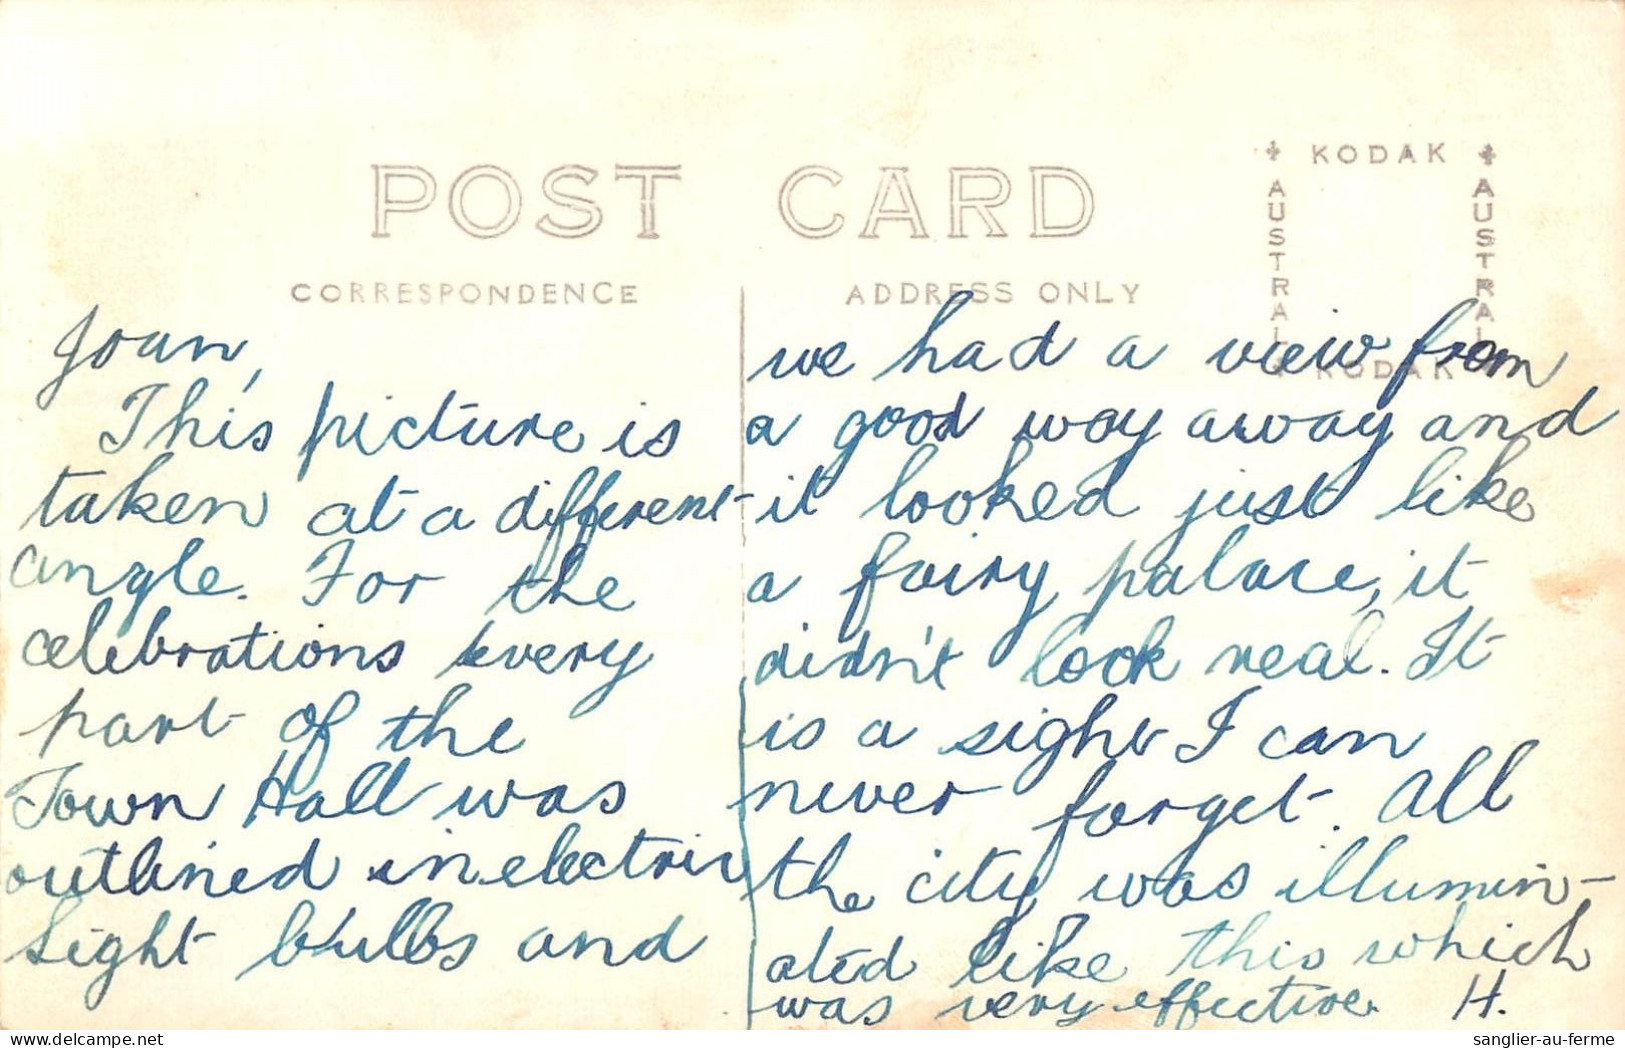 POST CARD
KODAK
AUSTRAL
AUSTRAL
KODAK
CORRESPONDENCE
ADDRESS ONLY
Joan,
This picture is
taken at a different
angle. For the
celebrations every
part of the
Town Hall was
outlined in electric
light bulbs and
we had a view from
a good way away and
it looked just like
a fairy palace, it
didn't look real. It
is a sight I can
never forget. All
the city was illumin-
ated like this which
was very effective. H.
sanglier-au-ferme